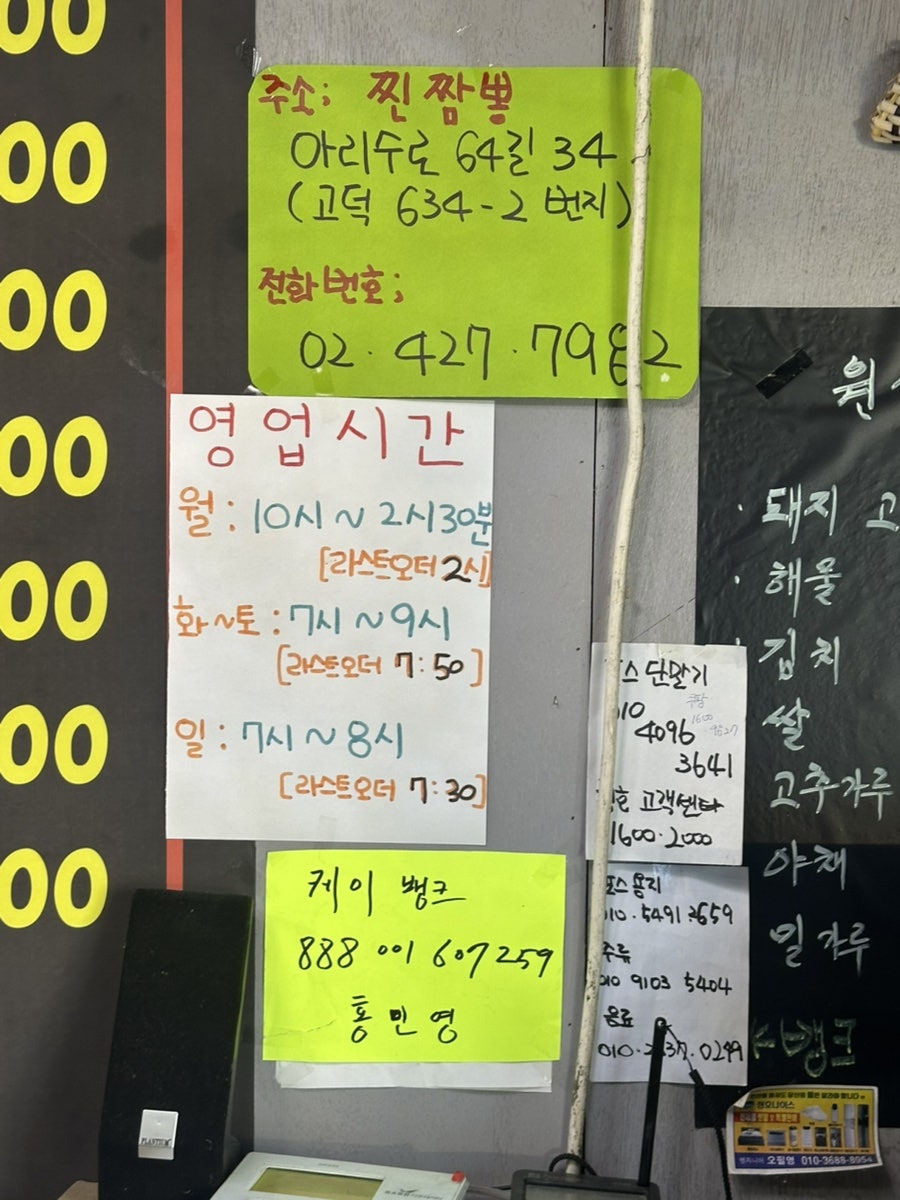 00
00
00
00
00
00
00
주소; 찐짬뽕
아리수로 64길 34
(고덕 634-2 번지)
전화번호;
02.427.7982
영업시간
월: 10시~2시30분
[라스트오더 2시]
화~토: 7시~9시
[라스트오더 7:50]
일: 7시~8시
[라스트오더 7:30]
케이 뱅크
888 001 607259
홍민영
스 단말기
010
쿠팡
4096
3641
고객센타
1600-2000
포스용지
010.5491.3659
주류
010 9103 5404
음료
0249
원
· 돼지 고
· 해물
김치
쌀
고추가루
야채
밀가루
뱅크
청호나이스
엔지니어 오필영 010-3688-8954
PLANTRONIC